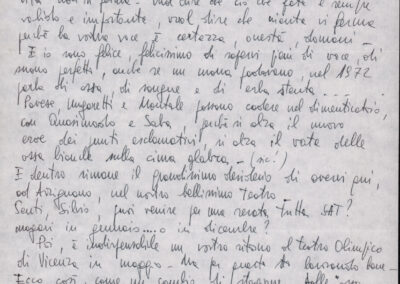 che ciò che fate è sempre
valido e importante, vuol dire che niente vi ferma
perchè la vostra voce è certezza, onestà, domani -
E io sono felice, felicissimo di sapervi pieni di voce, di
suono perfetti, anche se un nel 1972
parla di ossa, di sangue e di erba stenta .....
Pavese, Ungaretti e Montale possono cadere nel dimenticatoio,
con Quasimodo e Saba, perchè si alza il nuovo
eroe dei punti esclamativi, si alza il vate delle
ossa bianche sulla cima glabra - (sic!)
E dentro rimane il grandissimo desiderio di avervi qui,
ad Arzignano, nel nostro bellissimo Teatro -
Senti, Silvio, puoi venire per una serata tutta SAT?
magari in gennaio.....o in dicembre?
Poi, è indispensabile un vostro ritorno al Teatro Olimpico
di Vicenza in maggio - Ma per questo sto lavorando bene -
Ecco così, come un cambio di stagione,